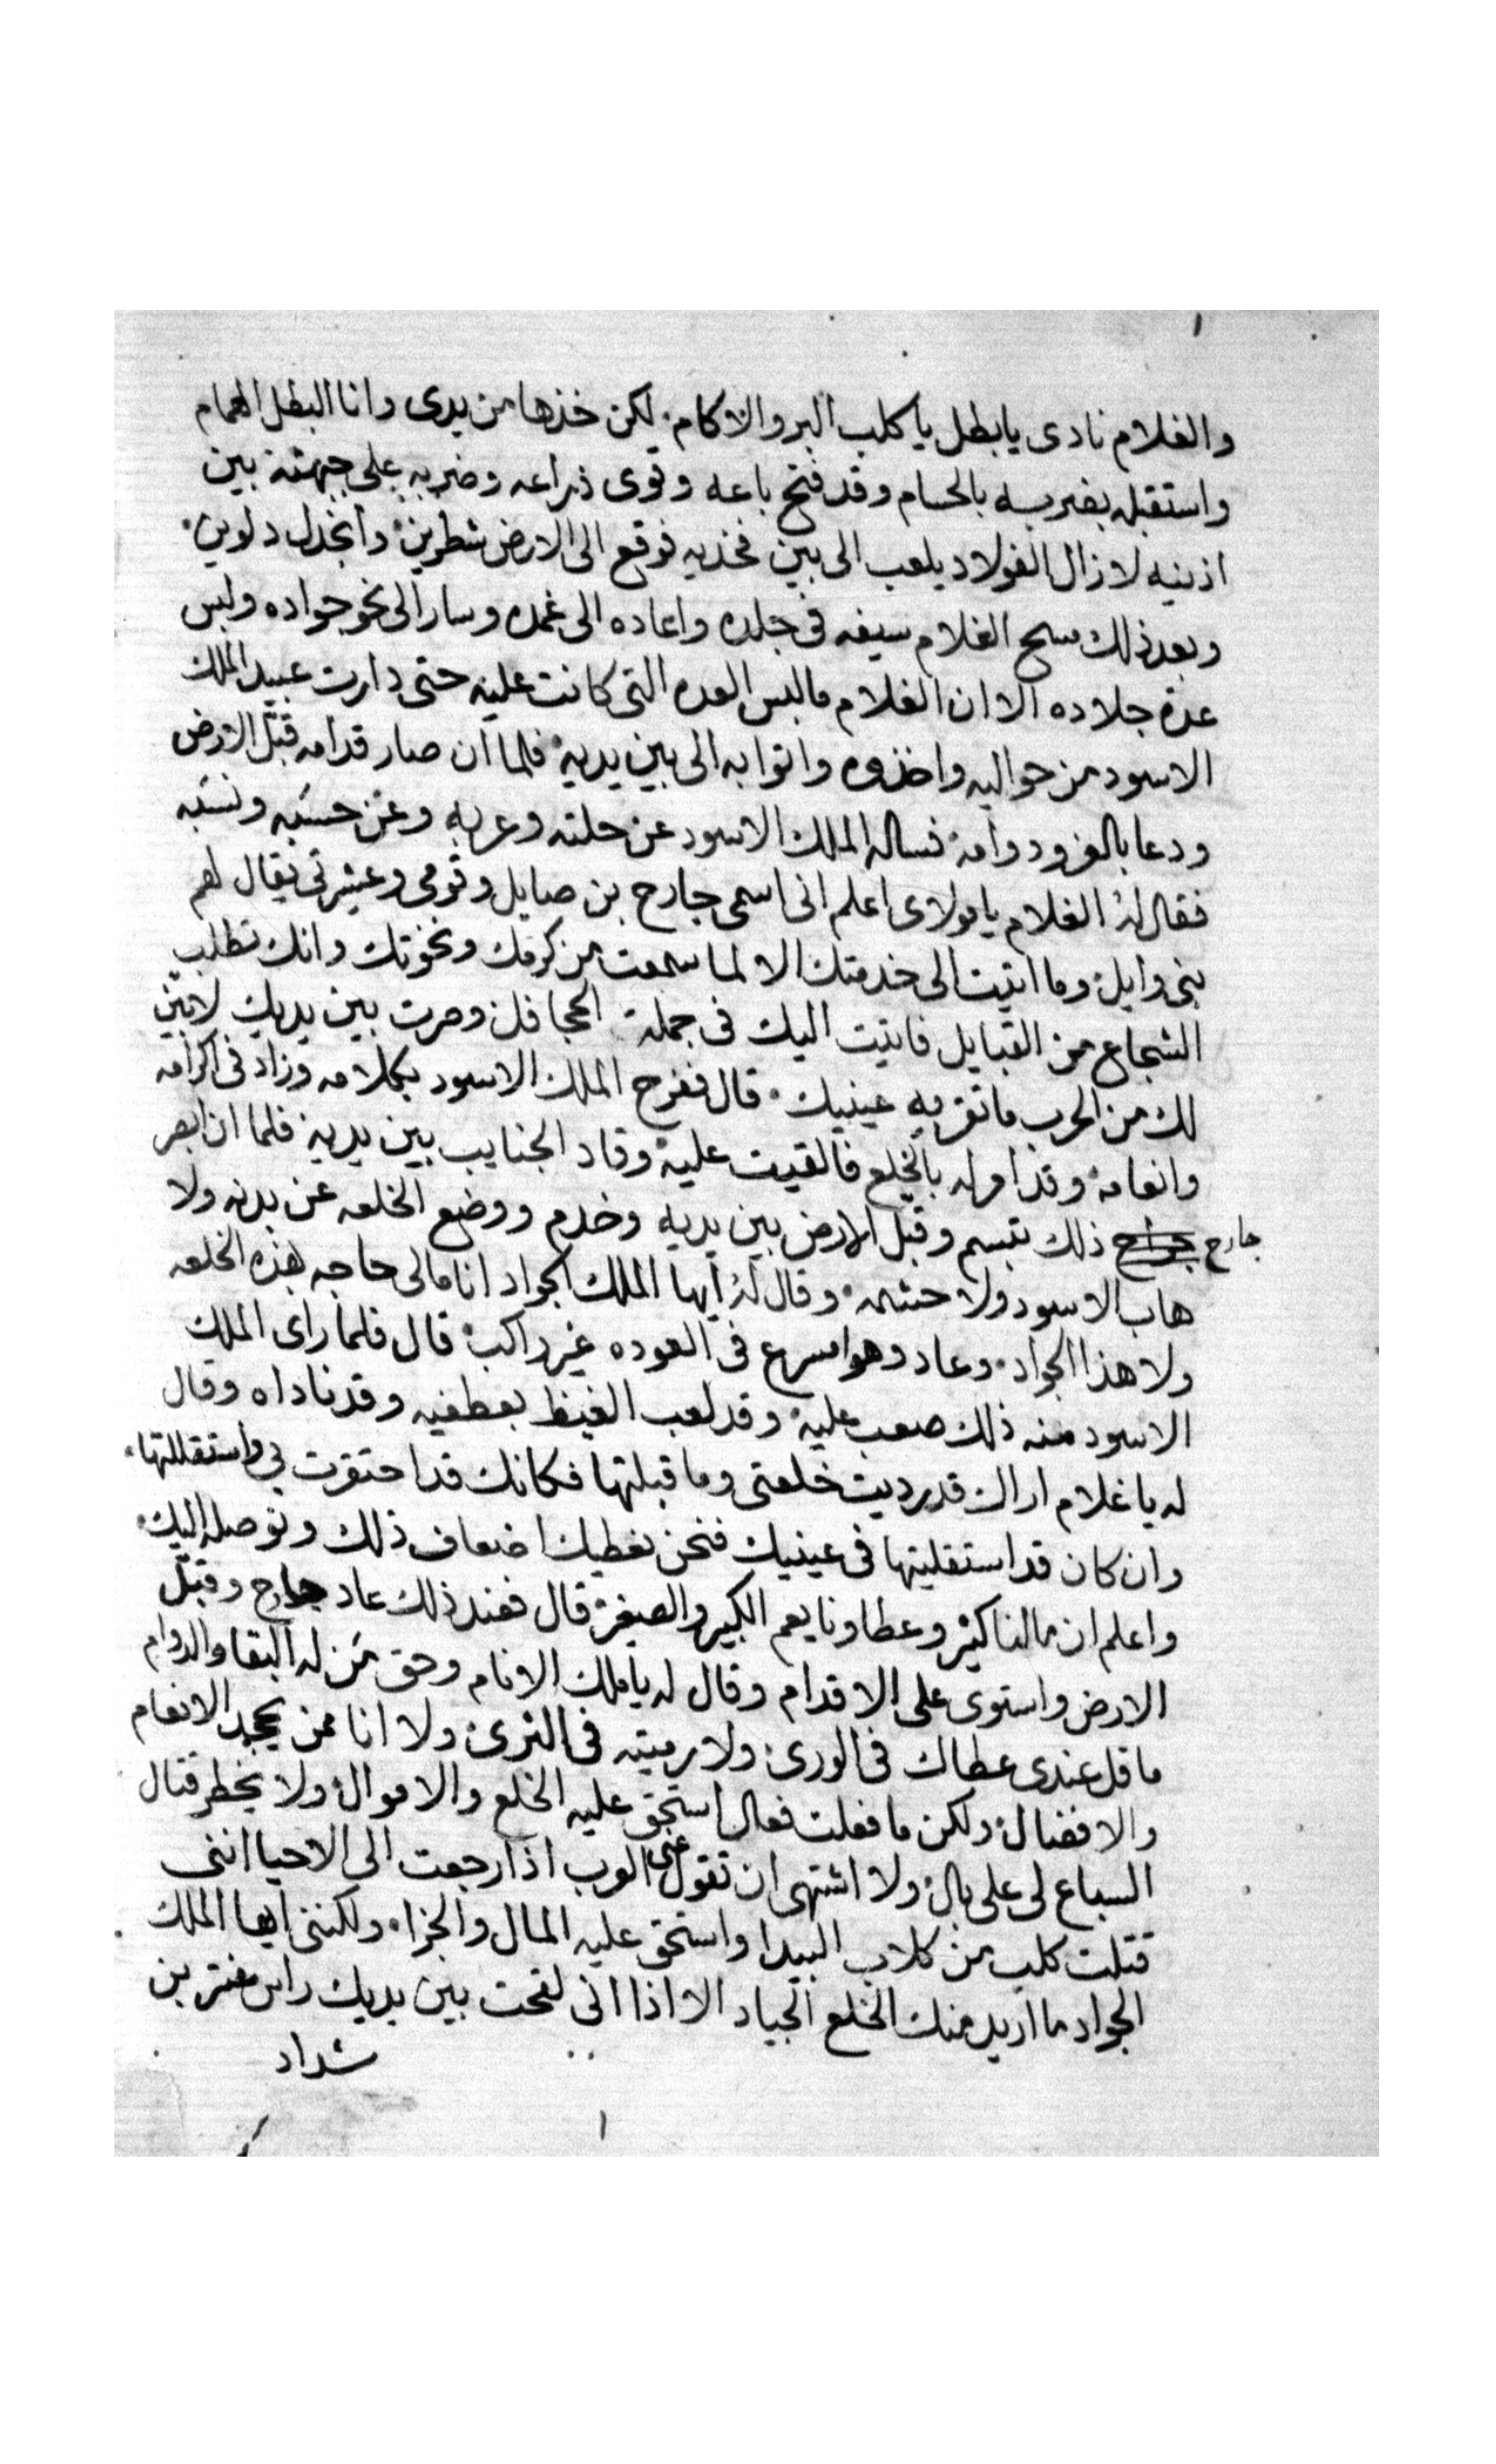 والغلام نادى يابطل ياكلب البر والاكام. لكن خذها من يدى وانا البطل الهمام
واستقبله بضربه بالحسام وقد فتح باعه وقوى ذراعه وضربه على جبهته بين
اذنيه لازال الفولاد يلعب الى بين فخذيه فوقع الى الارض شطرين وانجدل دلوين.
وبعد ذلك مسح الغلام سيفه فى جلده واعاده الى غمده وسار الى نحو جواده ولبس
عدة جلاده الا ان الغلام مالبس العده التى كانت عليه حتى دارت عبيد الملك
الاسود من حواليه واخذوه واتوا به الى بين يديه فلما ان صار قدامه قبل الارض
ودعا بالعز ودوامه فساله الملك الاسود عن حلته وعربه وعن حسبه ونسبه
فقال له الغلام يامولاى اعلم انى اسمى جارح بن صايل وقومى وعشيرتى يقال لهم
بنى وايل وما اتيت الى خدمتك الا لما سمعت من كرمك ونخوتك وانك تطلب
الشجاع من القبايل فاتيت اليك فى جملة الجحافل وصرت بين يديك لابين
لك من الحرب ماتقر به عينيك. قال ففرح الملك الاسود بكلامه وزاد فى اكرامه
وانعامه وقد امر له بالخلع فالقيت عليه وقاد الجنايب بين يديه فلما ان ابصر
جارح ذلك تبسم وقبل الارض بين يديه وخدم ووضع الخلعه عن بدنه ولا
هاب الاسود ولا حشمه. وقال له ايها الملك الجواد انا مالى حاجه بهذه الخلعه
ولا هذا الجواد. وعاد وهوا مسرع فى العوده غير راكب قال فلما راى الملك
الاسود منه ذلك صعب عليه وقد لعب الغيظ بعطفيه وقد ناداه وقال
له ياغلام اراك قد رديت خلعتى وما قبلتها فكانك قد احتقرت بى واستقللتها.
وان كان قد استقليتها فى عينيك فنحن نعطيك اضعاف ذلك ونوصله اليك.
واعلم ان مالنا كثير وعطاونا يعم الكبير والصغير قال فعند ذلك عاد جارح وقبل
الارض واستوى على الاقدام وقال له ياملك الانام وحق من له البقا والدوام
ماقل عندى عطاك فى الورى ولا رميته فى الثرى ولا انا ممن يجحد الانعام
والافضال ولكن مافعلت فعال استحق عليه الخلع والاموال ولا يخطر قتال
السباع لى على بال ولا اشتهى ان تقول عنى العرب اذا رجعت الى الاحيا اننى
قتلت كلب من كلاب البيدا واستحق عليه المال والجزاء ولكننى ايها الملك
الجواد ما اريد منك الخلع الجياد الا اذا انى لقحت بين يديك راس عنتر بن
شداد